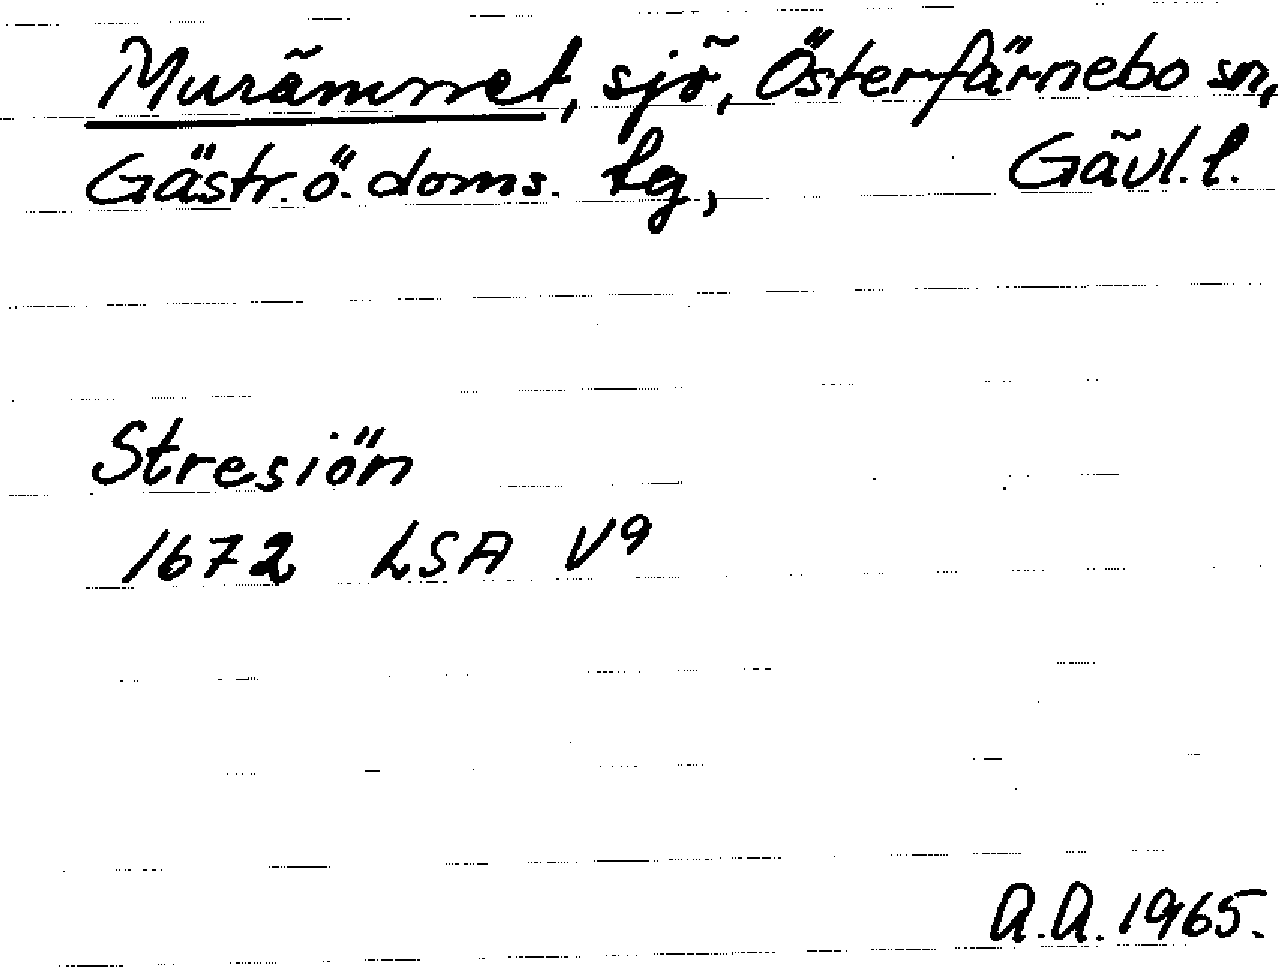 Murämnet, sjö, Österfärnebo sn,
Gästr. ö. doms. lg, Gävl. l.
Stresiön
1672 LSA V9
A.A. 1965.